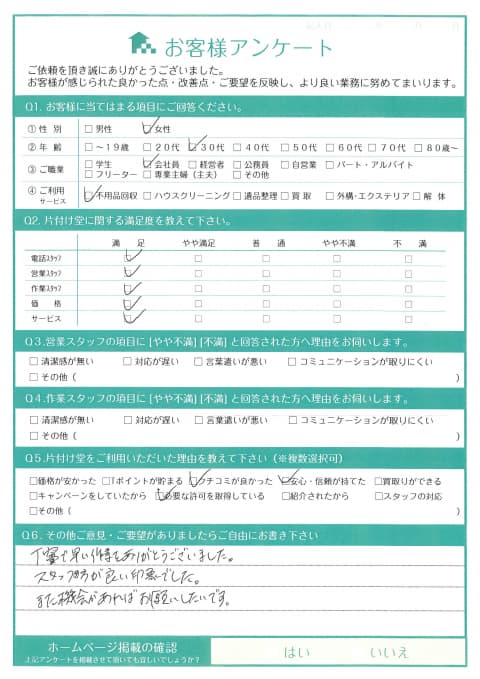 記入日 年 月 日
お客様アンケート
ご依頼を頂き誠にありがとうございました。
お客様が感じられた良かった点・改善点・ご要望を反映し、より良い業務に努めてまいります。
Q1. お客様に当てはまる項目にご回答ください。
①性 別 □男性 ☑女性
②年 齢 □～19歳 □20代 ☑30代 □40代 □50代 □60代 □70代 □80歳～
③ご職業 □学生 ☑会社員 □経営者 □公務員 □自営業 □パート・アルバイト
□フリーター □専業主婦（主夫） □その他
④ご利用サービス ☑不用品回収 □ハウスクリーニング □遺品整理 □買取 □外構・エクステリア □解 体
Q2. 片付け堂に関する満足度を教えて下さい。
満 足 やや満足 普 通 やや不満 不 満
電話スタッフ ☑ □ □ □ □
営業スタッフ ☑ □ □ □ □
作業スタッフ ☑ □ □ □ □
価 格 ☑ □ □ □ □
サービス ☑ □ □ □ □
Q3.営業スタッフの項目に [やや不満] [不満] と回答された方へ理由をお伺いします。
□清潔感が無い □対応が遅い □言葉遣いが悪い □コミュニケーションが取りにくい
□その他（ ）
Q4.作業スタッフの項目に [やや不満] [不満] と回答された方へ理由をお伺いします。
□清潔感が無い □対応が遅い □言葉遣いが悪い □コミュニケーションが取りにくい
□その他（ ）
Q5.片付け堂をご利用いただいた理由を教えて下さい（※複数選択可）
□価格が安かった □Tポイントが貯まる ☑クチコミが良かった ☑安心・信頼が持てた □買取りができる
□キャンペーンをしていたから ☑必要な許可を取得している □紹介されたから □スタッフの対応
□その他（ ）
Q6. その他ご意見・ご要望がありましたらご自由にお書き下さい
丁寧で早い作業ありがとうございました。
スタッフの方が良い印象でした。
また機会があればお願いしたいです。
ホームページ掲載の確認
上記アンケートを掲載させて頂いても宜しいでしょうか？
はい いいえ